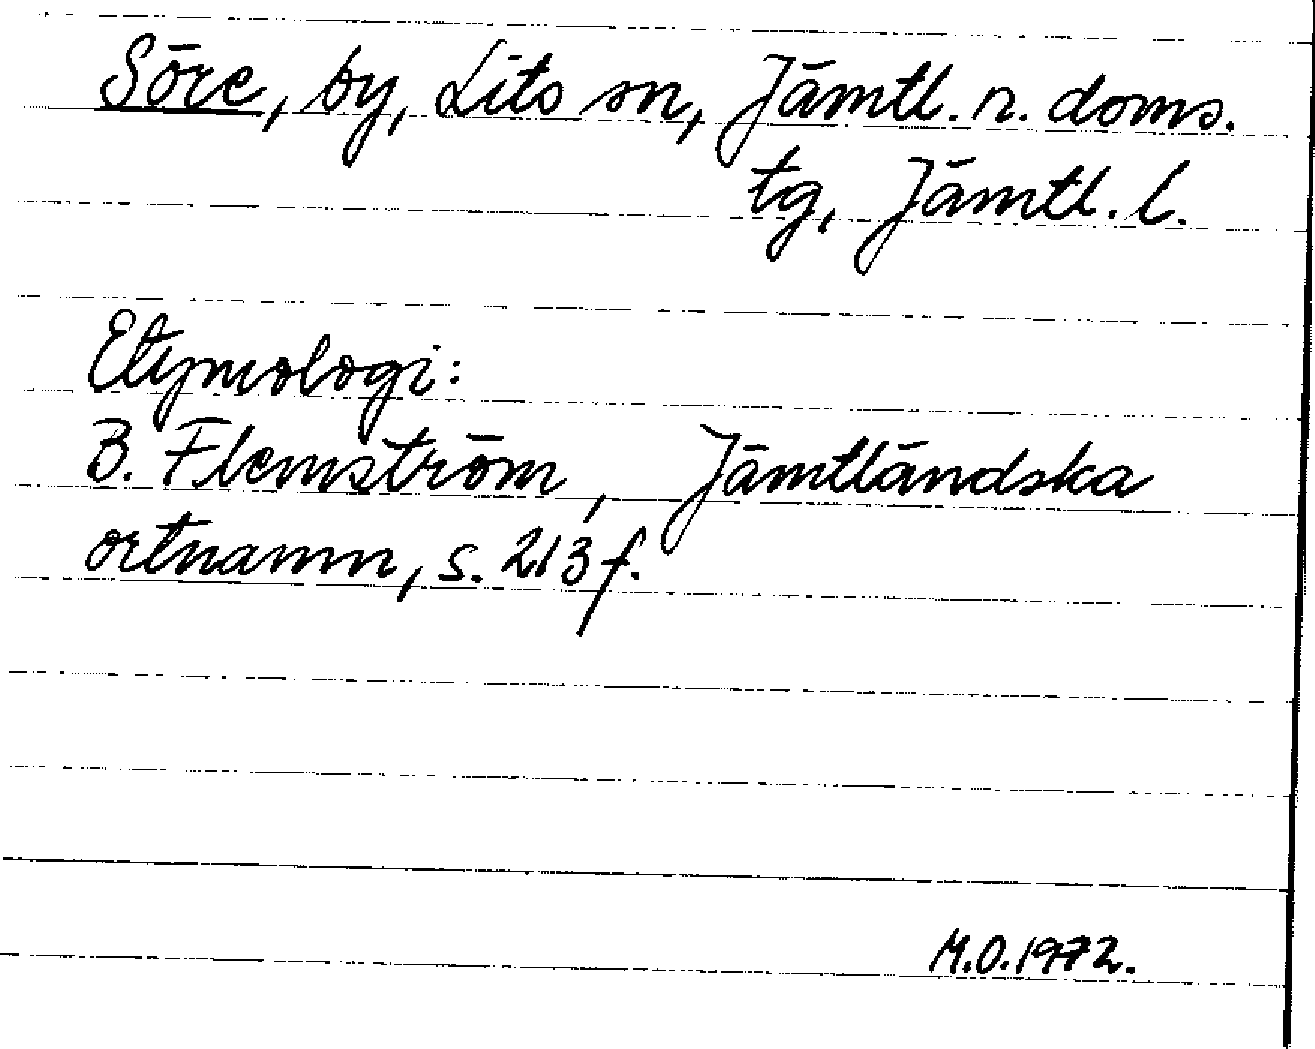 Söre, by, Lits sn, Jämtl. n. doms.
tg, Jämtl. l.
Etymologi:
B. Flemström, Jämtländska
ortnamn, s. 213 f.
M.O. 1972.